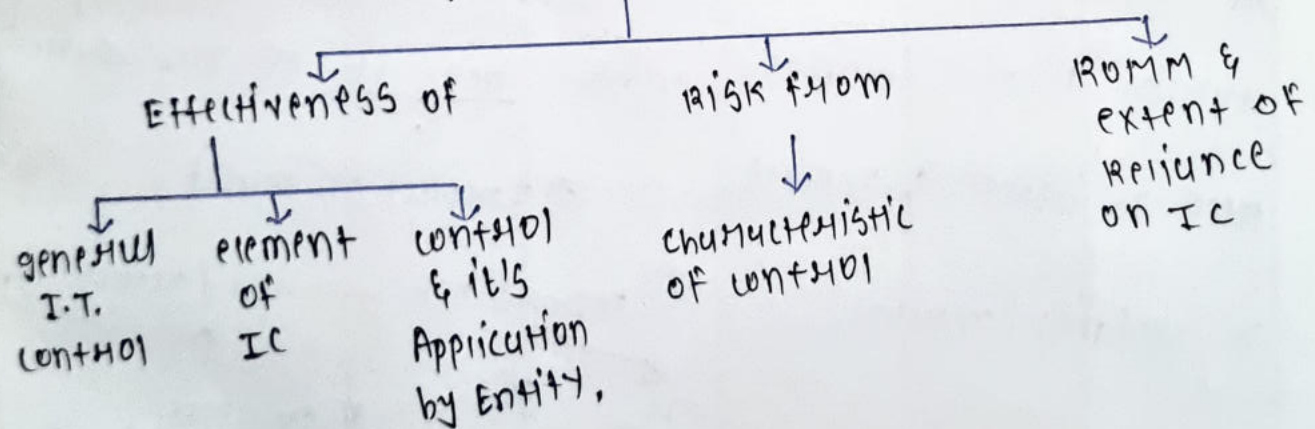 Effectiveness of
general
I.T.
control
element
of
IC
control
& it's
Application
by Entity,
Risk from
characteristic
of control
ROMM &
extent of
Reliance
on IC